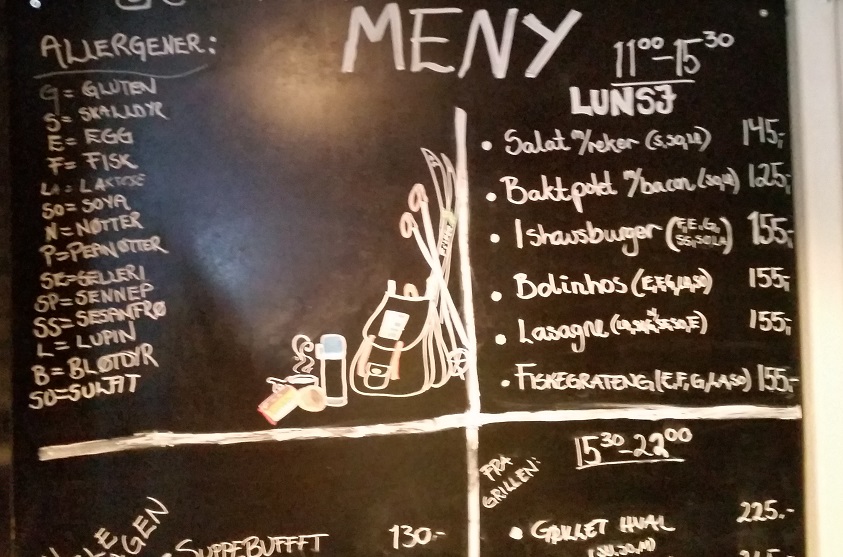 MENY
ALLERGENER:
G = GLUTEN
S = SKALLDYR
E = EGG
F = FISK
LA = LAKTOSE
SO = SOYA
N = NØTTER
P = PEANØTTER
SE = SELLERI
SP = SENNEP
SS = SESAMFRØ
L = LUPIN
B = BLØTDYR
SO = SULFIT
11⁰⁰-15³⁰
LUNSJ
• Salat m/reker (S,SO,LA) 145,-
• Baktpotet m/bacon (SO,LA) 125,-
• Ishavsburger (F,E,G, SS,SO,LA) 155,-
• Bolinhos (E,F,G,LA,SO) 155,-
• Lasagne 155,-
• FISKEGRATENG (E,F,G,LA,SO) 155,-
15³⁰-22⁰⁰
FRA
GRILLEN:
• GRILLET HVAL 225.-
SUPPEBUFFET 130,-